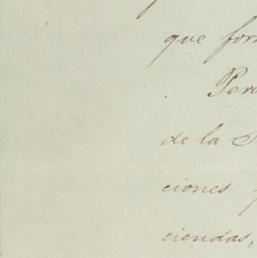 que for
Per
de la
ciones
ciendas,